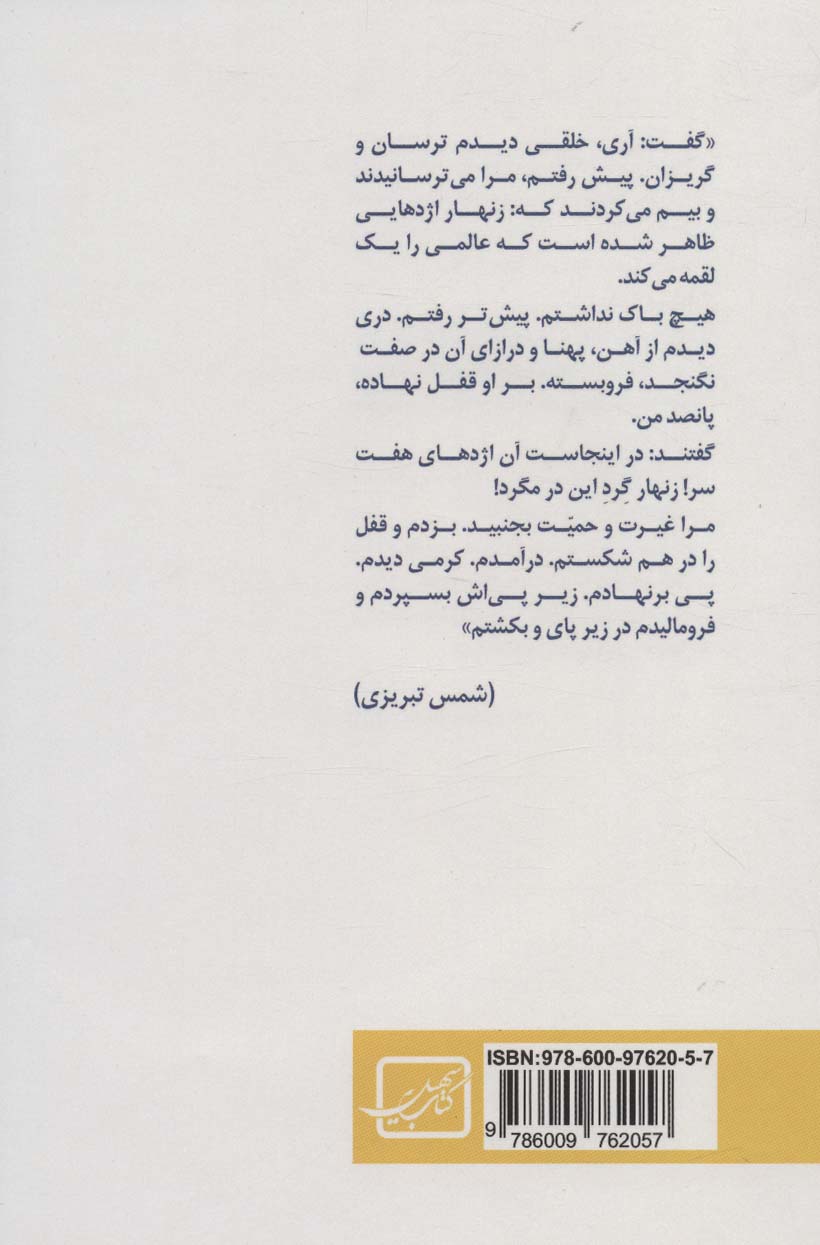 «گفت: آری، خلقی دیدم ترسان و
گریزان. پیش رفتم، مرا می‌ترسانیدند
و بیم می‌کردند که: زنهار اژدهایی
ظاهر شده است که عالمی را یک
لقمه می‌کند.
هیچ باک نداشتم. پیش‌تر رفتم. دری
دیدم از آهن، پهنا و درازای آن در صفت
نگنجد، فروبسته. بر او قفل نهاده،
پانصد من.
گفتند: در اینجاست آن اژدهای هفت
سر! زنهار گِردِ این در مگرد!
مرا غیرت و حمیّت بجنبید. بزدم و قفل
را در هم شکستم. درآمدم. کرمی دیدم.
پی برنهادم. زیر پی‌اش بسپردم و
فرومالیدم در زیر پای و بکشتم»
(شمس تبریزی)
ISBN:978-600-97620-5-7
9 786009 762057
کتاب سهیل